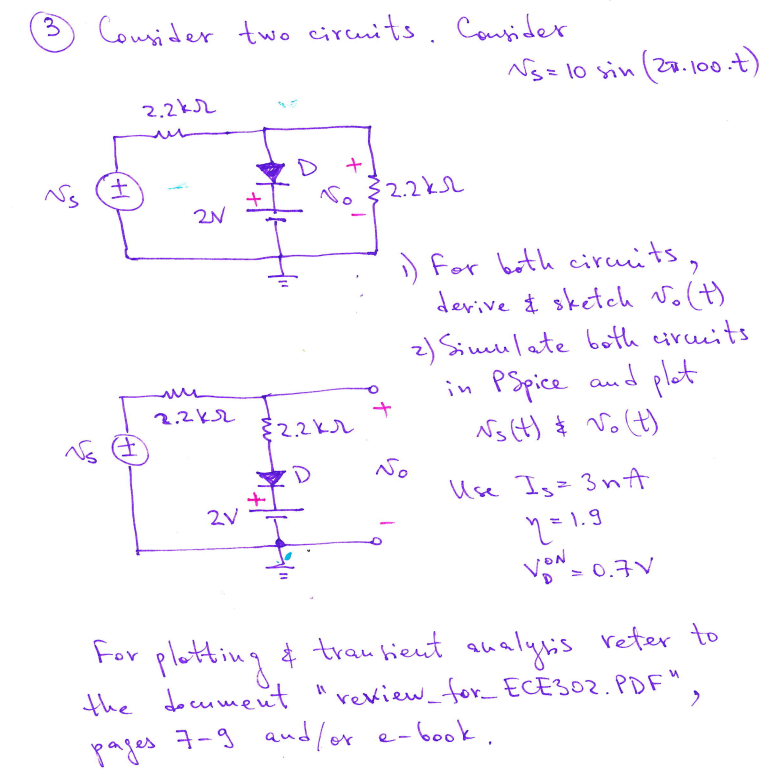 3 Consider two circuits. Consider
vs = 10 sin (2π.100.t)
2.2kΩ
D
+
vs
±
+
vo
2.2kΩ
2V
−
1) For both circuits,
derive & sketch vo(t)
2) Simulate both circuits
in PSpice and plot
vs(t) & vo(t)
2.2kΩ
+
2.2kΩ
vs
±
D
vo
+
2V
−
Use Is = 3nA
η = 1.9
VDON = 0.7V
For plotting & transient analysis refer to
the document "review_for_ECE302.PDF",
pages 7-9 and/or e-book.